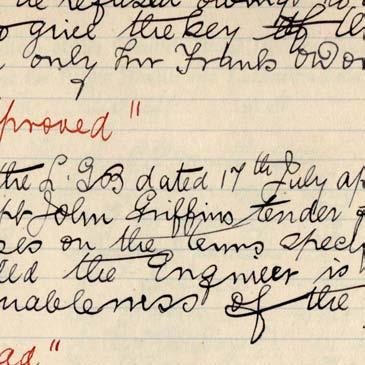 he refused owing to
give the key of th
only Mr Frank O'Do
proved"
the L.G.B dated 17th July ap
pt John Griffins tender
ses on the terms speci
led the Engineer is
uableness of the
ad"